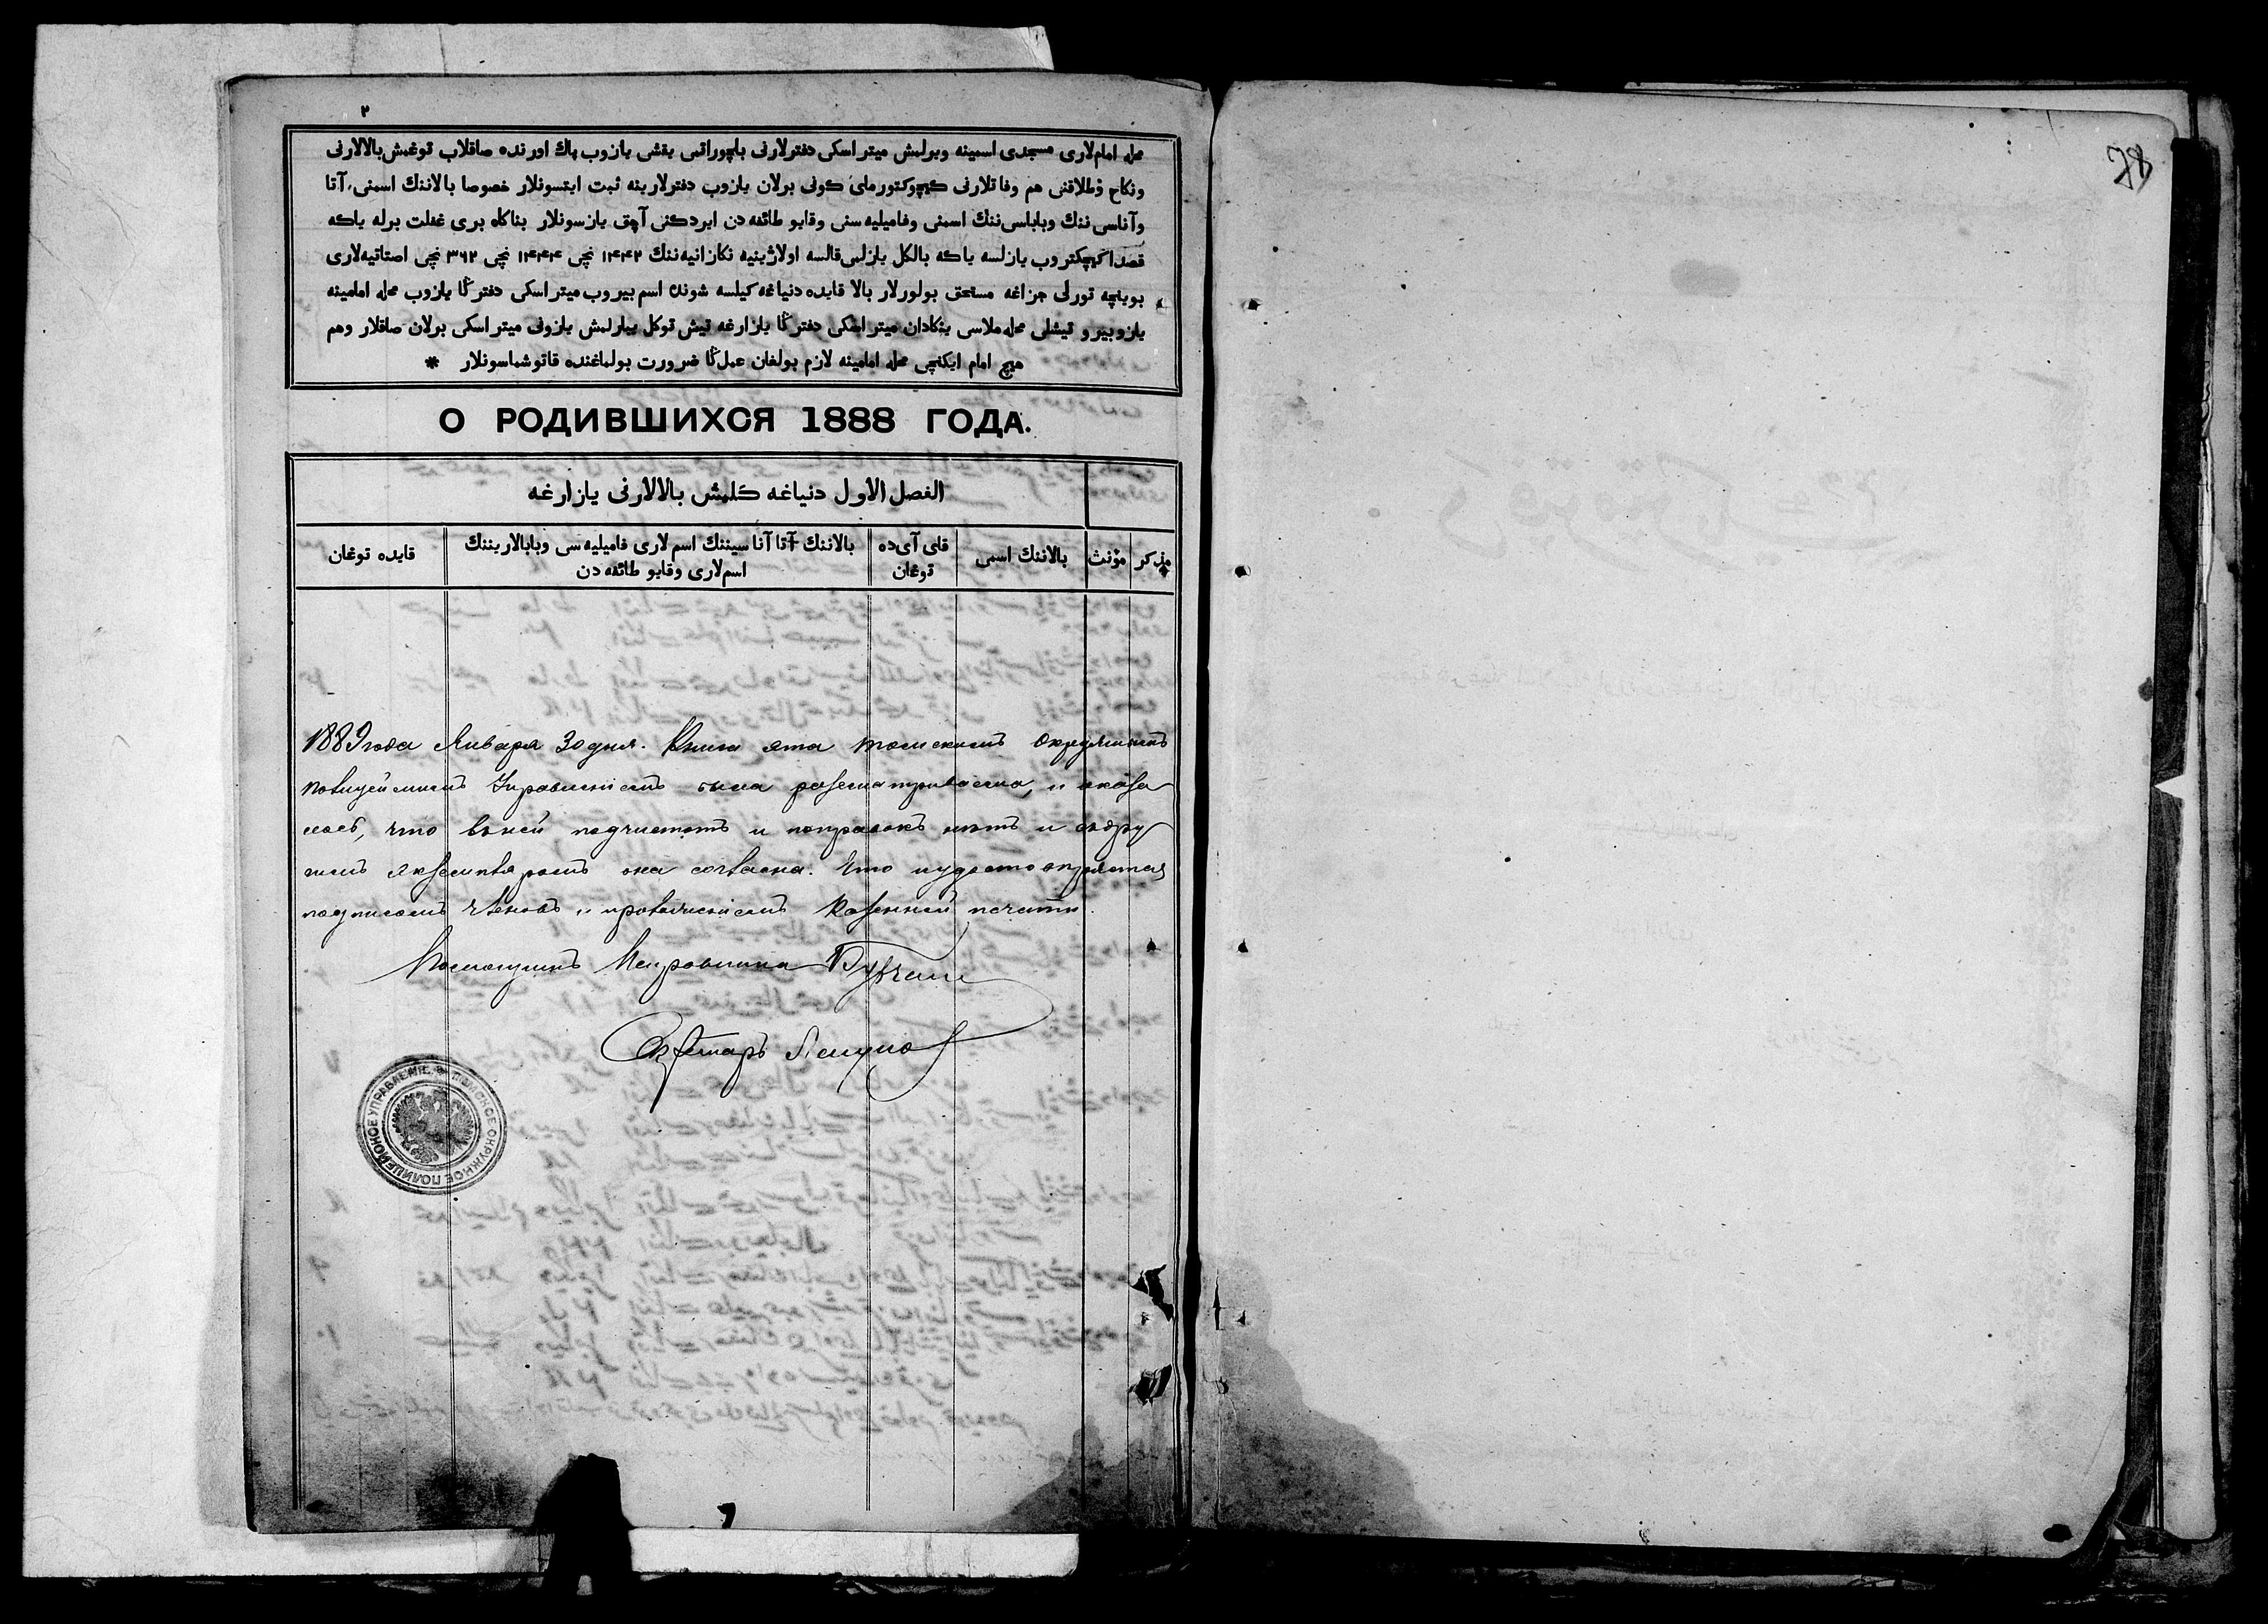 ۲
محله امام‌لاری مسجدی اسمینه ویرلمش میتراسکی دفترلارنی باچوراتمی یغشی یازوب پاك اورنده صاقلاب توغمش بالالارنی
ونكاح وطلاقنی هم وفاتلارنی كیچوكتورمای كونی برلان یازوب دفترلارینه ثبت ایتسونلار خصوصا بالاننك اسمنی، آتا
وآناسی ننك وباباسی ننك اسمنی وفامیلیه سنی وقایو طائفه دن ایردكنی آچق یازسونلار بناكاه بری غفلت برله یاكه
قصداً كیچكتروب یازلسه یاكه بالكل یازلمی قالسه اولاژینیه نكازانیه‌ننك ۱۴۴۲ نچی ۱۴۴۴ نچی ۳۶۲ نچی اصتاتیه‌لاری
بوینچه تورلی جزاغه مستحق بولورلار بالا قایده دنیاغه كیلسه شونده اسم بیروب میتراسكی دفتركا یازوب محله امامینه
یازوبیرو تیشلی محله ملاسی بنكادان میتراسكی دفتركا یازارغه تیش توكل بیارلمش یازونی میتراسكی برلان صاقلار وهم
هیچ امام ایكنچی محله امامینه لازم بولغان عمل‌كا ضرورت بولماغنده قاتوشماسونلار *
О РОДИВШИХСЯ 1888 ГОДА.
الفصل الاول دنیاغه كلمش بالالارنی یازارغه
مذكر
مؤنث
بالاننك اسمی
قای آی‌ده توغان
بالاننك آتا آناسیننك اسم‌لاری فامیلیه سی وبابالاریننك
اسم‌لاری وقایو طائفه دن
قایده توغان
1889 года Января 30 дня. Книга эта Томскимъ Окружнымъ
Полицейскимъ Управленіемъ была разсматриваема, и оказа
лось, что въ ней подчистокъ и поправокъ нѣтъ и съ дру
гимъ экземпляромъ она согласна. Что и удостовѣряется
подписомъ членовъ и приложеніемъ Казенной печати.
Помощникъ Исправника
Секретарь
ТОМСКОЕ ОКРУЖНОЕ ПОЛИЦЕЙСКОЕ УПРАВЛЕНІЕ
28